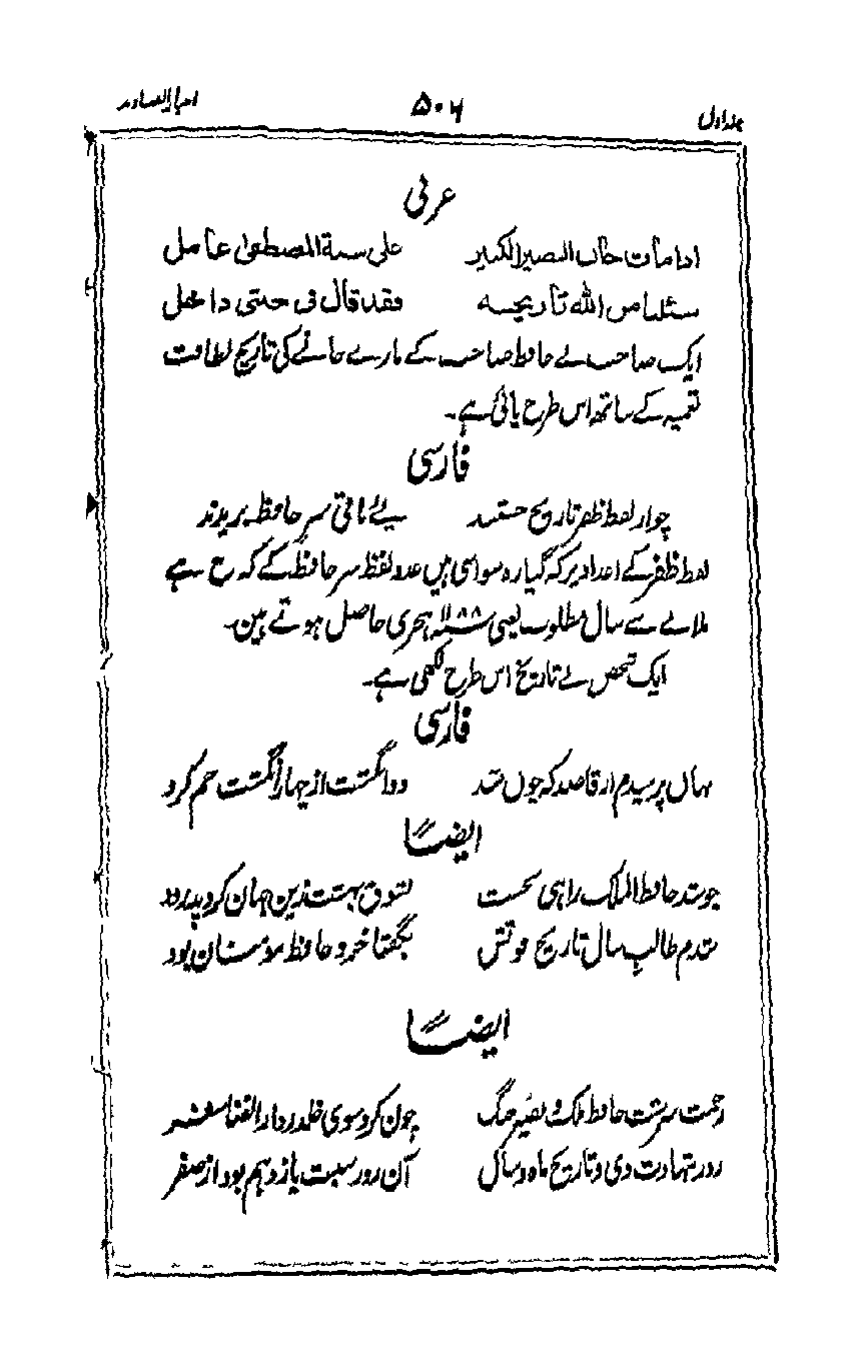 جلد اول ۵۰۶ اخبار الصنادید
عربی
اذا مات خان النصیر الکبیر علی سنة المصطفی عامل
سئلنا من الله تاریخه فقد قال فی جنتی داخل
ایک صاحب نے حافظ صاحب کے مارے جانے کی تاریخ لطافت
تعمیہ کے ساتھ اس طرح پائی ہے۔
فارسی
چو از لفظ ظفر تاریخ جستند پئے باقی سر حافظ بریدند
لفظ ظفر کے اعداد پر کہ گیارہ سو اسی ہیں عدد لفظ سر حافظ کے کہ ح ہے
ملانے سے سال مطلوب یعنی ۱۱۸۸ ہجری حاصل ہوتے ہین۔
ایک شخص نے تاریخ اس طرح لکھی ہے۔
فارسی
بہاں پرسیدم از قاصد کہ چوں شد دو انگشت از چہار انگشت خم کرد
ایضاً
چو شد حافظ الملک راہی بشوق بہشت زین جہان کرد پدرود
شدم طالب سال تاریخ فوتش بگفتا خرد حافظ مؤمنان بود
ایضاً
رحمت سرشت حافظ ملک و نصیر جنگ چون کرد سوی خلد ز دار الفنا سفر
روز شہادت وی و تاریخ ماہ و سال آن روز سبت یازدہم بود از صفر